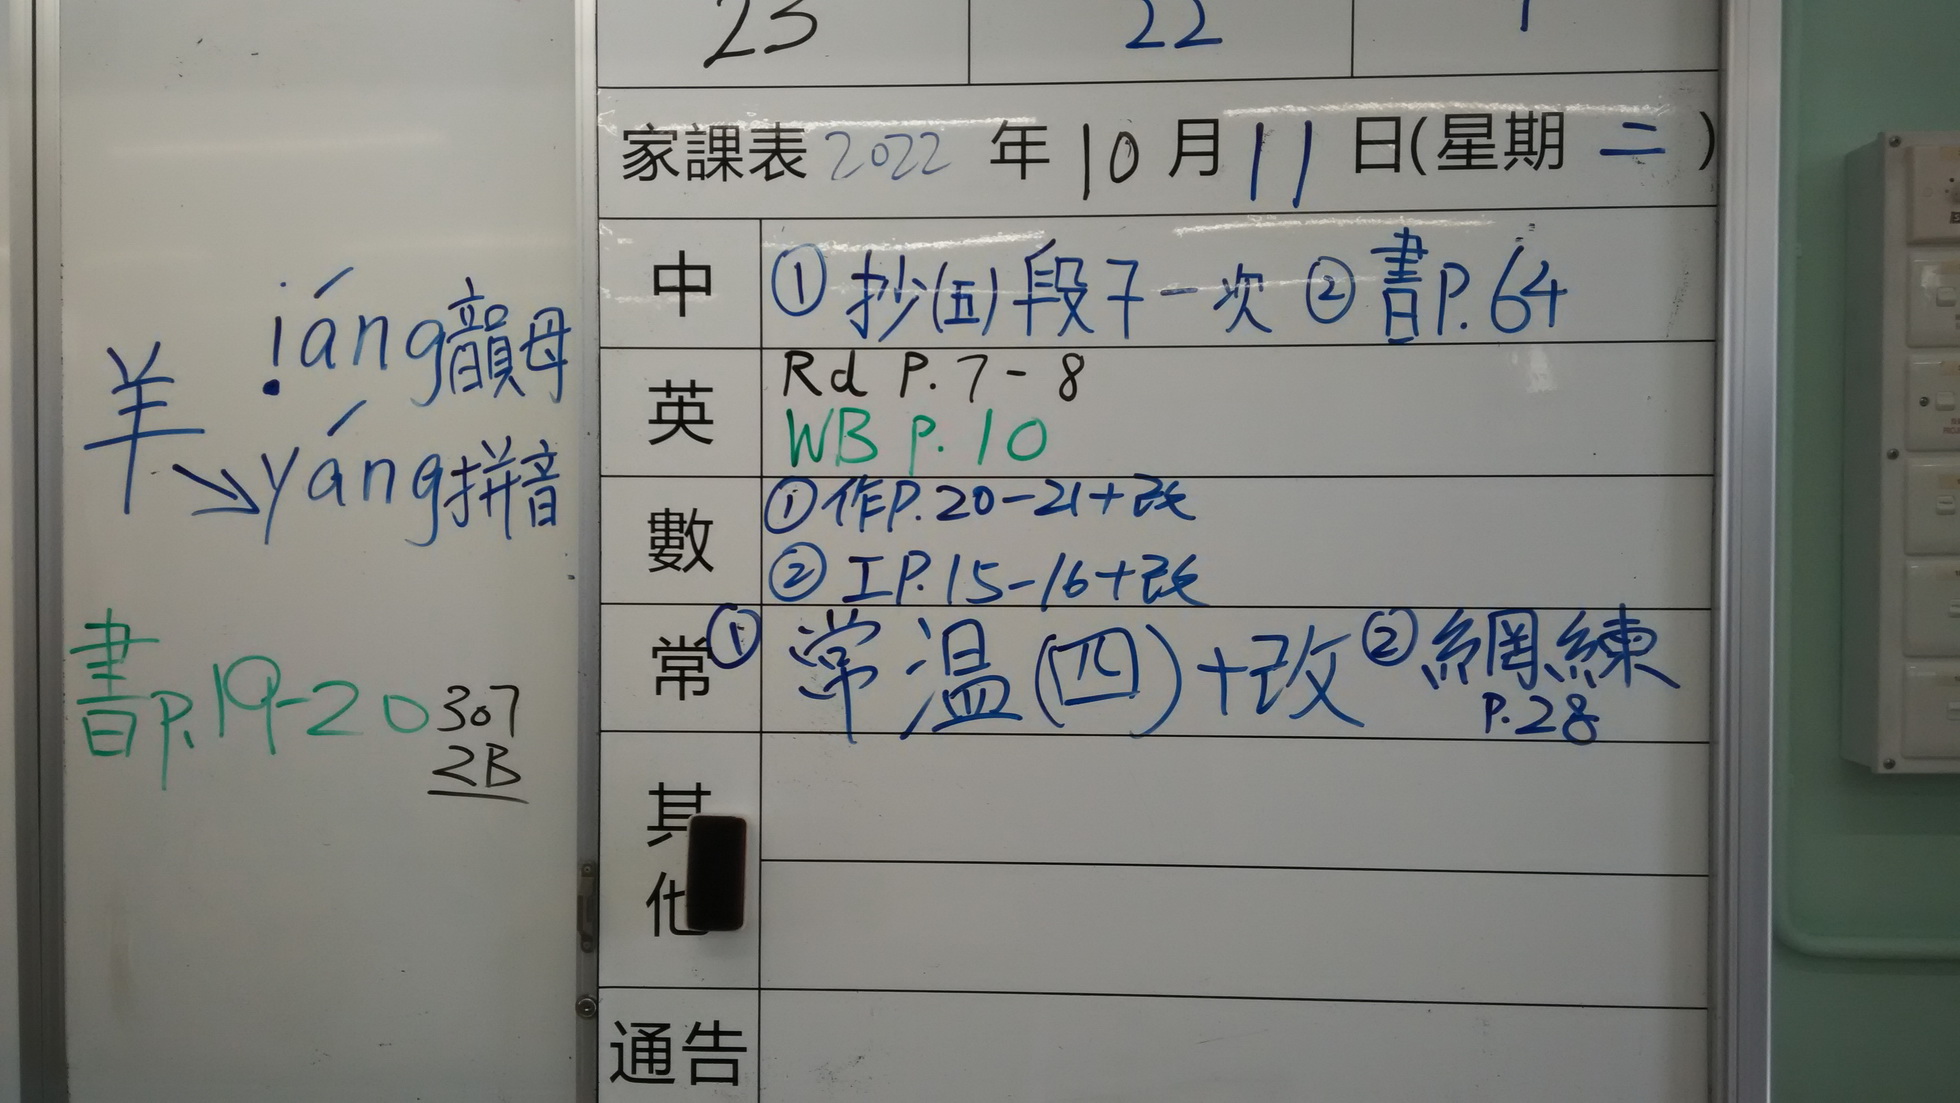 23 22 1
家課表 2022 年 10 月 11 日(星期 二 )
中 ① 抄(五)段子一次 ② 書P.64
英 Rd P.7-8
WB P.10
數 ①作P.20-21+改
② 工P.15-16+改
常 ① 常溫(四)+改 ② 網練
P.28
其
他
通告
iáng韻母
羊
yáng拼音
書P.19-20 307
2B